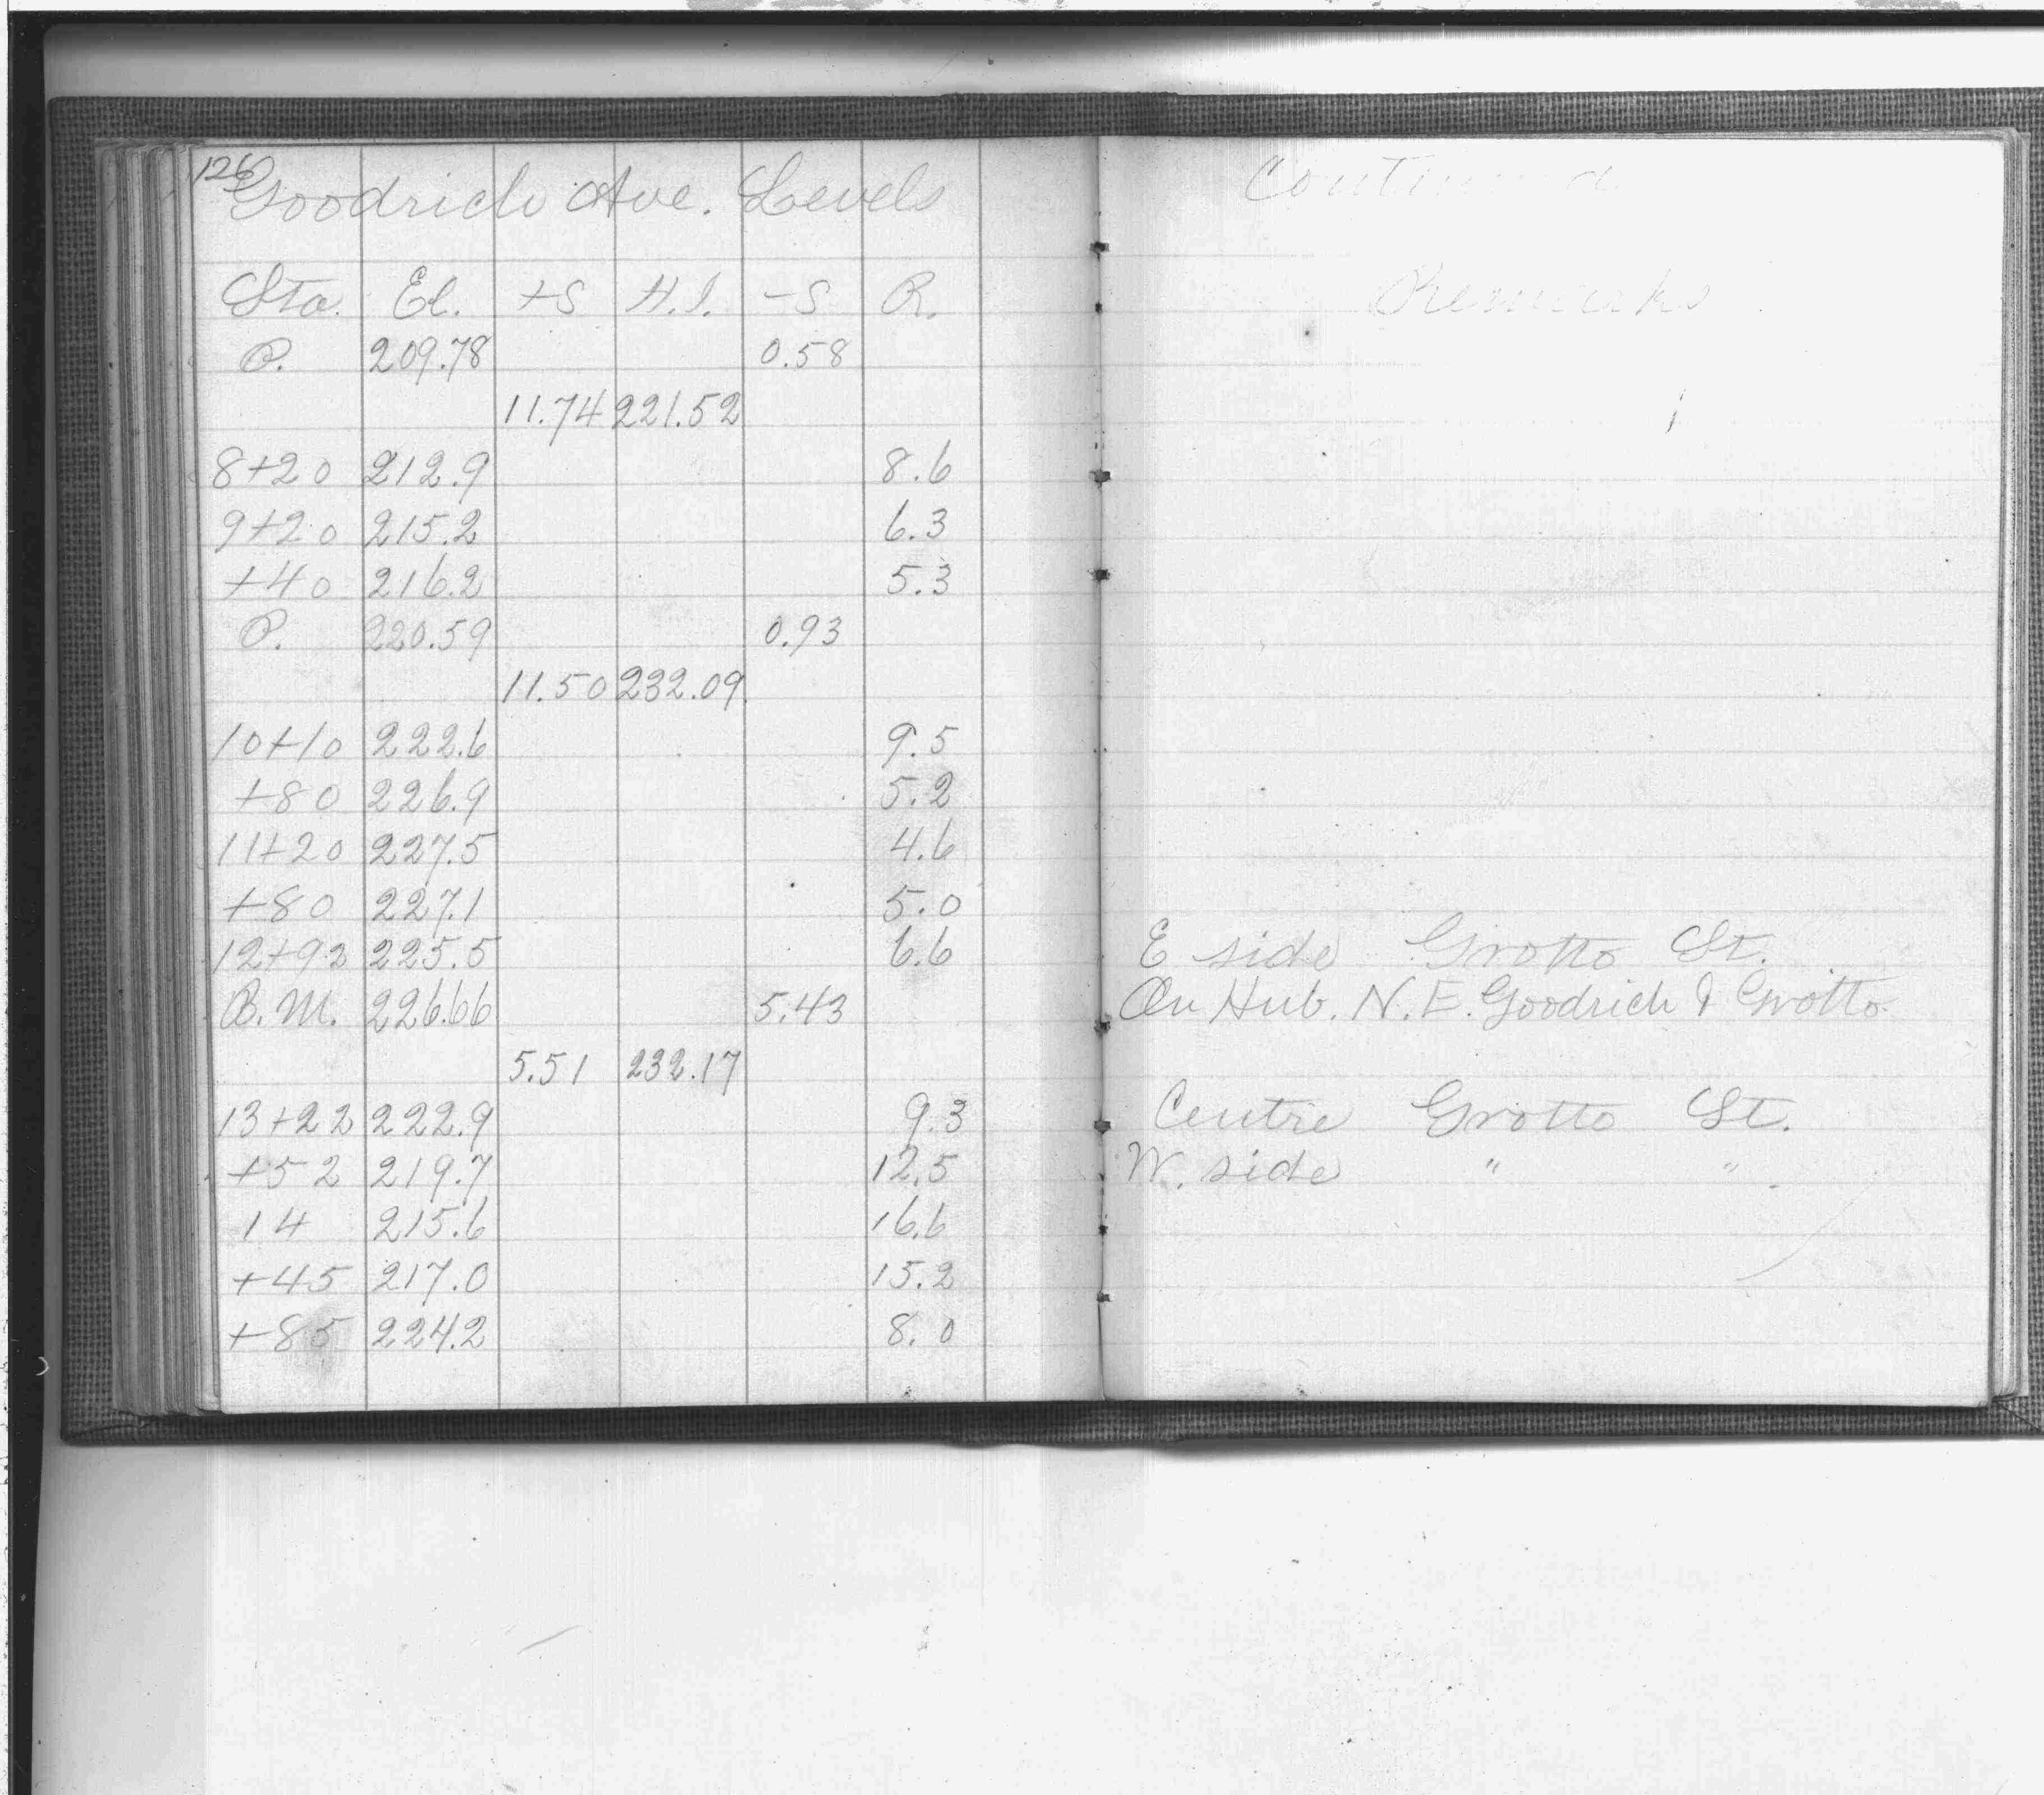 126
Goodrich Ave. Levels Continued
Sta. El. +S H.I. -S R. Remarks
P. 209.78 0.58
11.74 221.52
8+20 212.9 8.6
9+20 215.2 6.3
+40 216.2 5.3
P. 220.59 0.93
11.50 232.09
10+10 222.6 9.5
+80 226.9 5.2
11+20 227.5 4.6
+80 227.1 5.0
12+92 225.5 6.6 E side Grotto St.
B.M. 226.66 5.43 On Hub. N.E. Goodrich & Grotto
5.51 232.17
13+22 222.9 9.3 Centre Grotto St.
+52 219.7 12.5 W. side " "
14 215.6 16.6
+45 217.0 15.2
+85 224.2 8.0